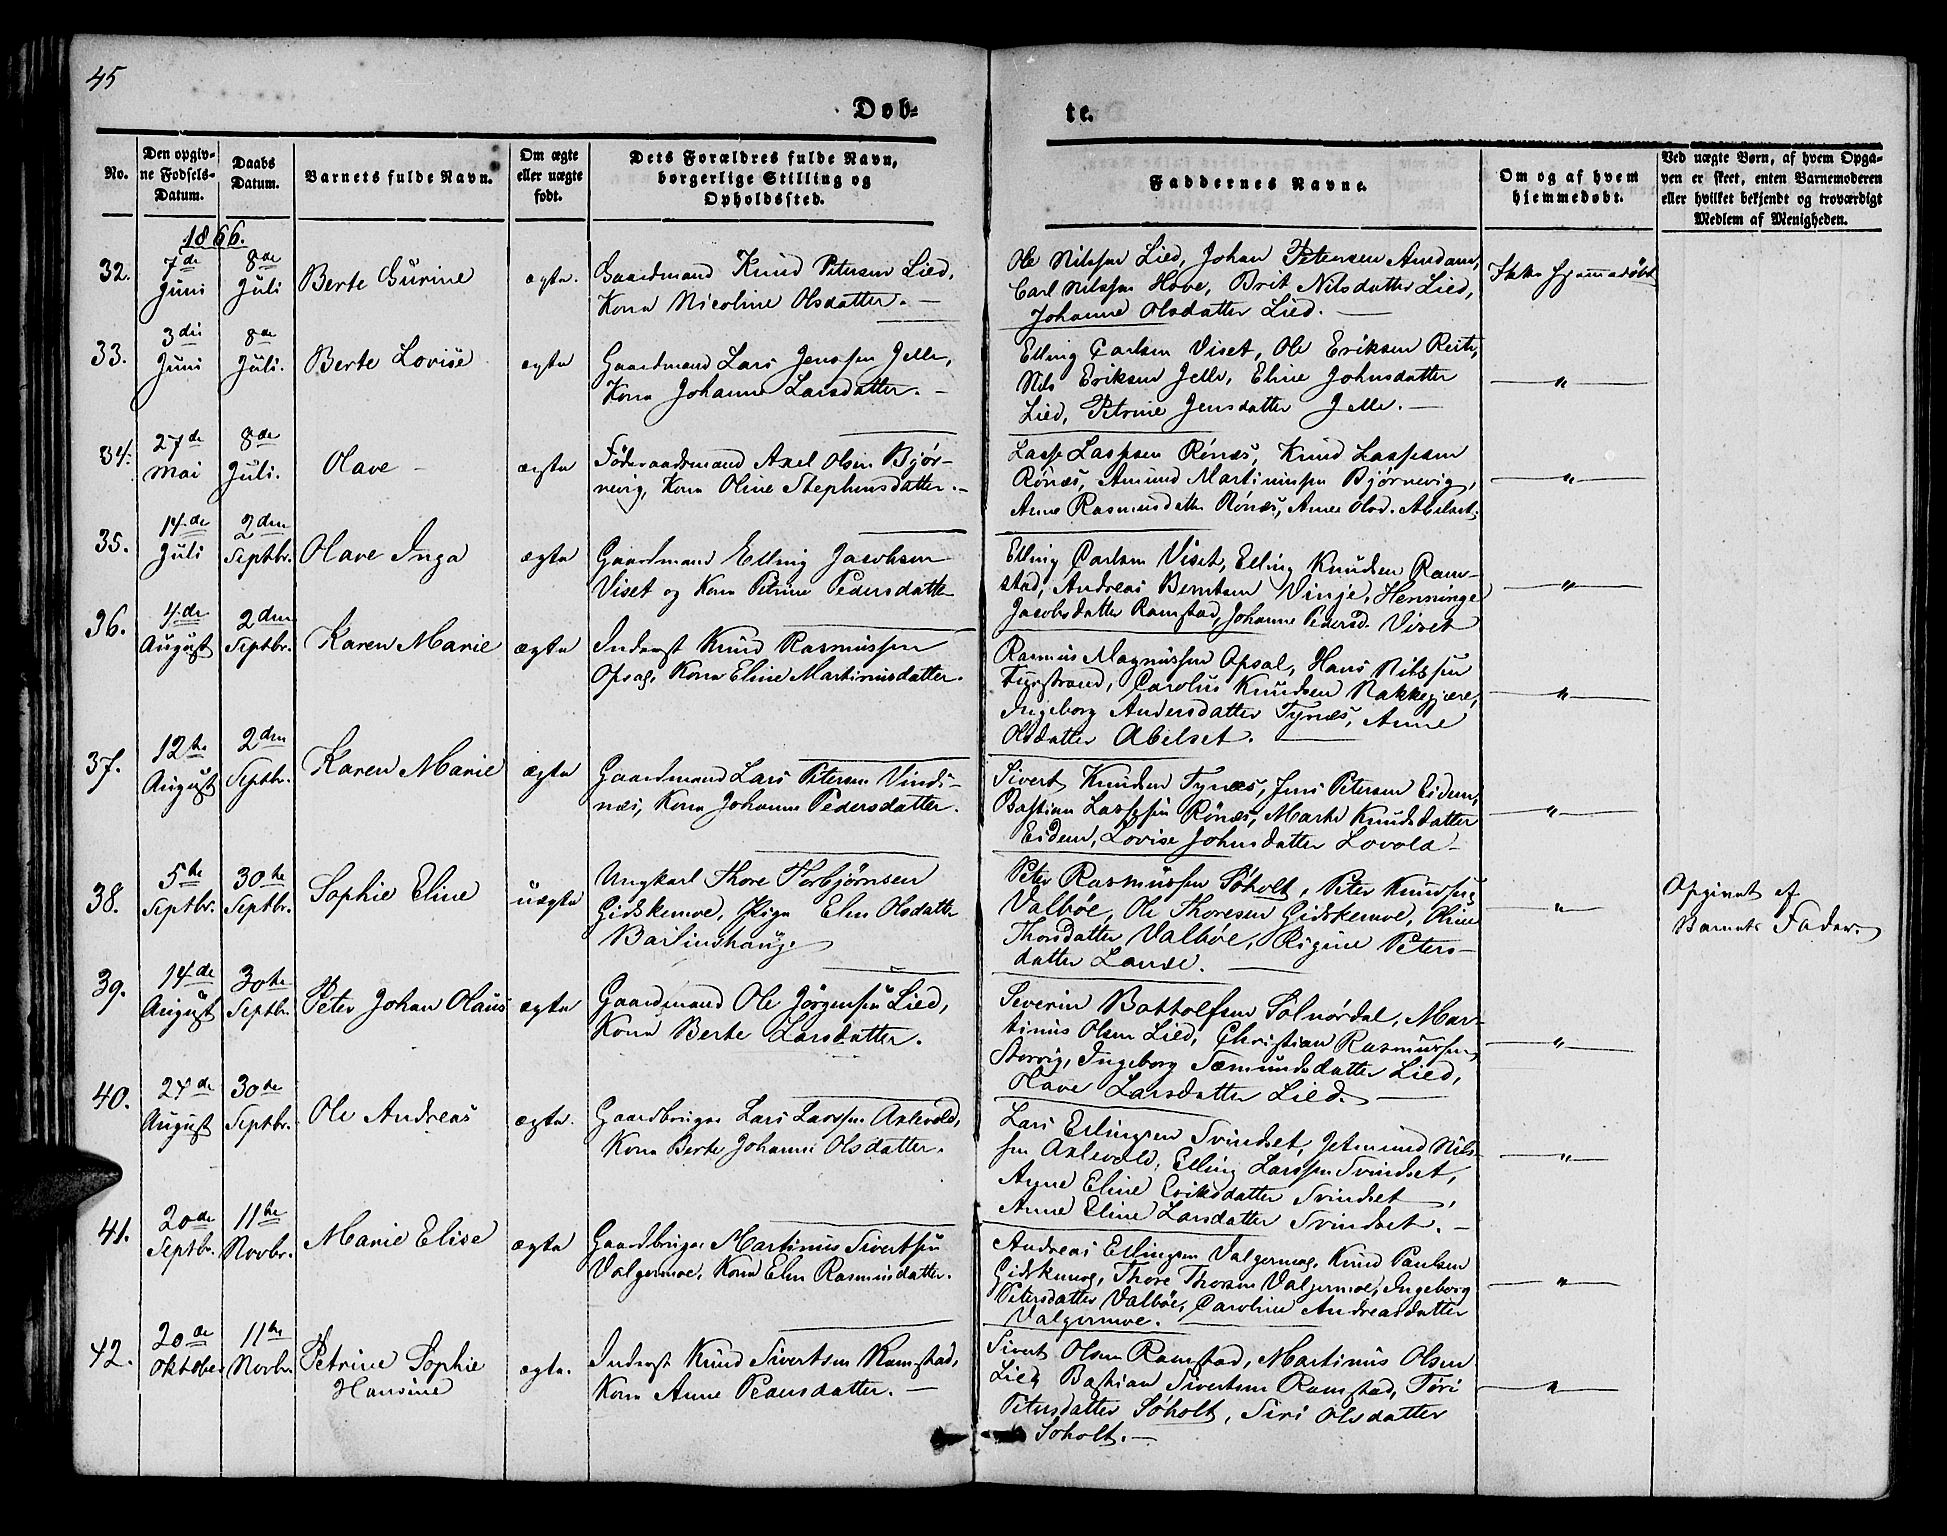 45
Døb-
te.
No.
Den opgiv-
ne Fødsels-
Datum.
Daabs
Datum.
Barnets fulde Navn.
Om ægte
eller uægte
født.
Dets Forældres fulde Navn,
borgerlige Stilling og
Opholdssted.
Faddernes Navne.
Om og af hvem
hjemmedøbt.
Ved uægte Børn, af hvem Opga-
ven er skeet, enten Barnemoderen
eller hvilket bekjendt og troværdigt
Medlem af Menigheden.
1866.
32.
7de
Juni
8de
Juli
Berte Gurine
ægte.
Gaardmand Knud Petersen Lied,
Kone Nicoline Olsdatter. —
Ole Nilssen Lied, Johan Petersen Amdam,
Carl Nilssen Hove, Brit Nilsdatter Lied,
Johanne Olsdatter Lied. —
Ikke hjemmedøbt
33.
3die
Juni
8de
Juli.
Berte Lovise
ægte
Gaardmand Lars Jenssen Jelle,
Kone Johanne Larsdatter. —
Elling Carlsen Viset, Ole Eriksen Reite,
Nils Eriksen Jelle, Eline Johnsdatter
Lied, Petrine Jensdatter Jelle. —
— " —
34.
27de
Mai
8de
Juli.
Olave —
ægte
Føderaadsmand Axel Olsen Bjør-
nevig, Kone Oline Stephensdatter. —
Lasse Lassesen Rønæs, Knud Lassesen
Rønæs, Amund Martinussen Bjørnevig,
Anne Rasmusdatter Rønæs, Anne Olsd. Abelset.
— " —
35.
14de
Juli
2den
Septbr.
Olave Inga
ægte
Gaardmand Elling Jacobsen
Viset og Kone Petrine Pedersdatter
Elling Carlsen Viset, Elling Knudsen Ram-
stad, Andreas Berntsen Vinje, Henninge
Jacobsdatter Ramstad, Johanne Pedersd. Viset
— " —
36.
4de
August
2den
Septbr.
Karen Marie
ægte
Inderst Knud Rasmussen
Opsal, Kone Eline Martinusdatter.
Rasmus Magnussen Opsal, Hans Nilssen
Fyrstrand, Carolus Knudsen Nakkegjære,
Ingeborg Andersdatter Tynæs, Anne
Olsdatter Abelset. —
— " —
37.
12te
August
2den
Septbr.
Karen Marie
ægte
Gaardmand Lars Petersen Vinds-
næs, Kone Johanne Pedersdatter.
Sivert Knudsen Tynæs, Jens Petersen Eidem,
Bastian Lassesen Rønæs, Marte Knudsdatter
Eidem, Lovise Johnsdatter Lovold —
— " —
38.
5te
Septbr.
30te
Septbr.
Sophie Eline
uægte
Ungkarl Thore Torbjørnsen
Gidskemoe, Pige Elen Olsdatter
Peter Rasmussen Søholt, Peter Knudsen
Valbøe, Ole Thoresen Gidskemoe, Oline
Thorsdatter Valbøe, Regine Peters-
datter Lande.
— " —
Opgivet af
Barnets Fader.
39.
14de
August
30te
Septbr.
Peter Johan Olaus
ægte
Gaardmand Ole Jørgensen Lied,
Kone Berte Larsdatter.
Severin Bottolfsen Solnørdal, Mar-
tinus Olsen Lied, Christian Rasmussen
Storvig, Ingeborg Sæmundsdatter Lied,
Olave Larsdatter Lied. —
— " —
40.
24de
August
30te
Septbr.
Ole Andreas
ægte.
Gaardbruger Lars Larssen Aslevold,
Kone Berte Johanne Olsdatter.
Lars Erlingsen Svindset, Jetmund Nils-
sen Aslevold, Elling Larssen Svindset,
Anne Eline Eriksdatter Svindset,
Anne Eline Larsdatter Svindset. —
— " —
41.
20de
Septbr.
11te
Novbr.
Marie Elise
ægte
Gaardbruger Martinus Sivertsen
Valgermoe, Kone Elen Rasmusdatter.
Andreas Erlingsen Valgermoe, Knud Paulsen
Gidskemoe, Thore Thorsen Valgermoe, Ingeborg
Petersdatter Valbøe, Caroline Andreasdatter
Valgermoe. —
— " —
42.
20de
Oktober
11te
Novbr.
Petrine Sophie
Hansine
ægte.
Inderst Knud Sivertsen Ramstad,
Kone Anne Pedersdatter. —
Sivert Olsen Ramstad, Martinus Olsen
Lied, Bastian Sivertsen Ramstad, Siri
Petersdatter Søholt, Siri Olsdatter
Søholt. —
— " —